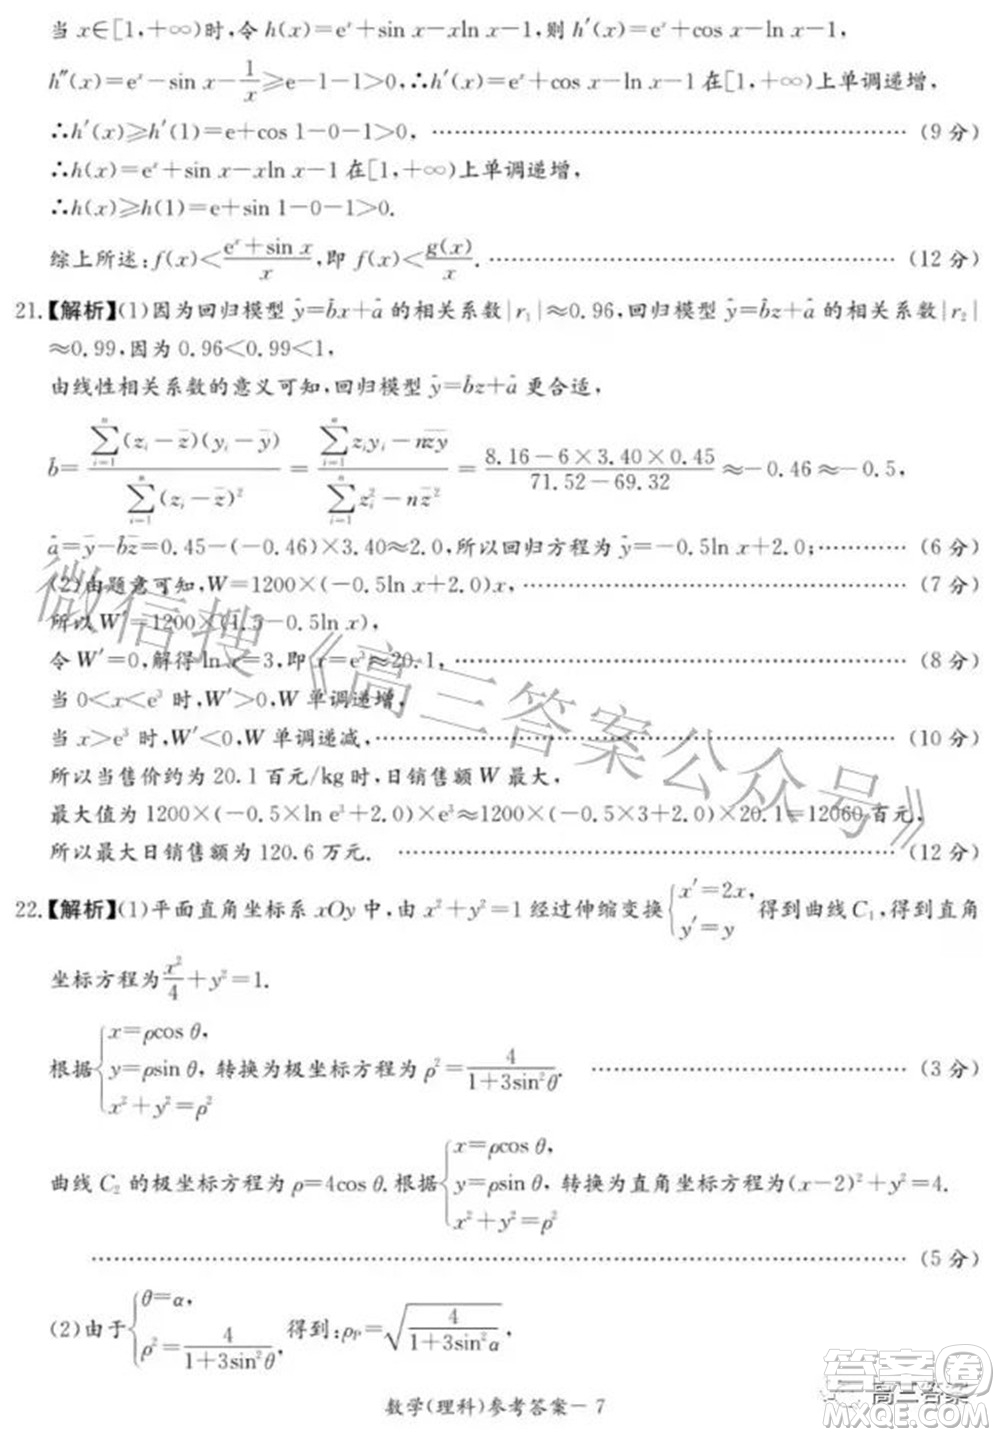 当 x∈[1,+∞)时,令 h(x)=eˣ+sin x−xln x−1,则 h′(x)=eˣ+cos x−ln x−1,
h″(x)=eˣ−sin x−1/x≥e−1−1>0,∴h′(x)=eˣ+cos x−ln x−1 在[1,+∞)上单调递增,
∴h′(x)≥h′(1)=e+cos 1−0−1>0, ……………… (9 分)
∴h(x)=eˣ+sin x−xln x−1 在[1,+∞)上单调递增,
∴h(x)≥h(1)=e+sin 1−0−1>0.
综上所述:f(x)<(eˣ+sin x)/x,即 f(x)<g(x)/x. ……………… (12 分)
21.【解析】(1)因为回归模型 ŷ=b̂x+â 的相关系数|r₁|≈0.96,回归模型 ŷ=b̂z+â 的相关系数|r₂|
≈0.99,因为 0.96<0.99<1,
由线性相关系数的意义可知,回归模型 ŷ=b̂z+â 更合适,
b̂=∑ⁿᵢ₌₁(zᵢ−z̄)(yᵢ−ȳ)/∑ⁿᵢ₌₁(zᵢ−z̄)²=(∑ⁿᵢ₌₁zᵢyᵢ−nz̄ȳ)/(∑ⁿᵢ₌₁zᵢ²−nz̄²)=(8.16−6×3.40×0.45)/(71.52−69.32)≈−0.46≈−0.5,
â=ȳ−b̂z̄=0.45−(−0.46)×3.40≈2.0,所以回归方程为 ŷ=−0.5ln x+2.0; ………… (6 分)
(2)由题意可知,W=1200×(−0.5ln x+2.0)x, ……………… (7 分)
所以 W′=1200×(1.5−0.5ln x),
令 W′=0,解得 ln x=3,即 x=e³≈20.1, ……………… (8 分)
当 0<x<e³ 时,W′>0,W 单调递增,
当 x>e³ 时,W′<0,W 单调递减, ……………… (10 分)
所以当售价约为 20.1 百元/kg 时,日销售额 W 最大,
最大值为 1200×(−0.5×ln e³+2.0)×e³≈1200×(−0.5×3+2.0)×20.1=12060 百元,
所以最大日销售额为 120.6 万元. ……………… (12 分)
22.【解析】(1)平面直角坐标系 xOy 中,由 x²+y²=1 经过伸缩变换{x′=2x, y′=y 得到曲线 C₁,得到直角
坐标方程为 x²/4+y²=1.
根据{x=ρcos θ, y=ρsin θ, x²+y²=ρ² 转换为极坐标方程为 ρ²=4/(1+3sin²θ). ……………… (3 分)
曲线 C₂ 的极坐标方程为 ρ=4cos θ.根据{x=ρcos θ, y=ρsin θ, x²+y²=ρ² 转换为直角坐标方程为(x−2)²+y²=4.
……………… (5 分)
(2)由于{θ=α, ρ²=4/(1+3sin²θ), 得到:ρₚ=√(4/(1+3sin²α)),
数学(理科)参考答案－7
微信搜《高三答案公众号》
答案圈
高三答案
MXQE.COM